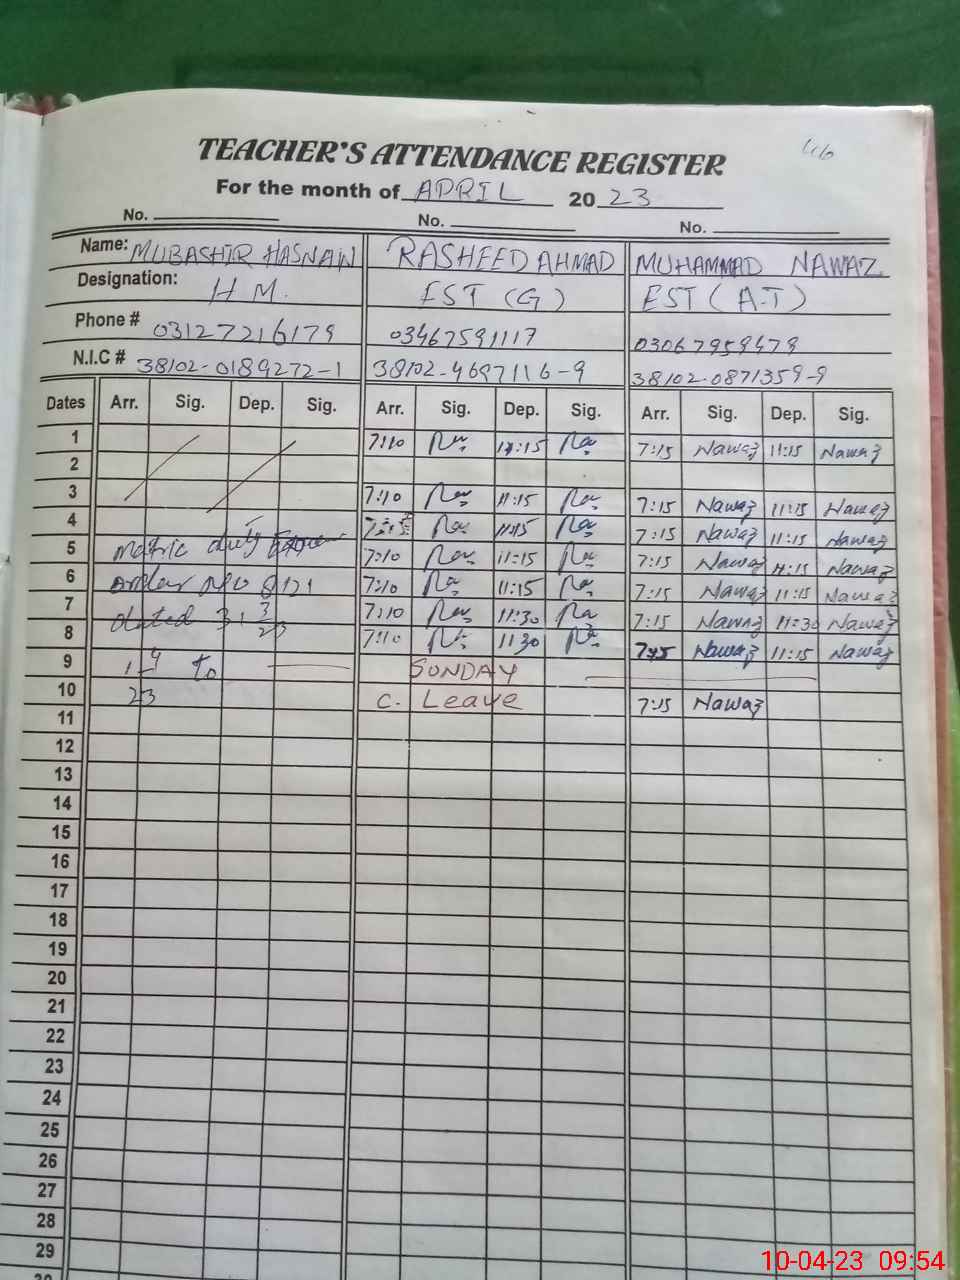 46
TEACHER'S ATTENDANCE REGISTER
For the month of APRIL 2023
No. No. No.
Name: MUBASHIR HASNAIN RASHEED AHMAD MUHAMMAD NAWAZ
Designation: H M. EST (G) EST (A.T)
Phone # 03127216179 03467591117 03067959479
N.I.C # 38102-0189272-1 38102-4697116-9 38102-0871359-9
Dates Arr. Sig. Dep. Sig. Arr. Sig. Dep. Sig. Arr. Sig. Dep. Sig.
1 7:10 11:15 7:15 Nawaz 11:15 Nawaz
2
3 7:10 11:15 7:15 Nawaz 11:15 Nawaz
4 11:15 7:15 Nawaz 11:15 Nawaz
5 Matric duty 7:10 11:15 7:15 Nawaz 11:15 Nawaz
6 order No 7:10 11:15 7:15 Nawaz 11:15 Nawaz
7 dated 7:10 11:30 7:15 Nawaz 11:30 Nawaz
8 7:10 11 30 Nawaz 11:15 Nawaz
9 to SUNDAY
10 23 C. Leave 7:15 Nawaz
11
12
13
14
15
16
17
18
19
20
21
22
23
24
25
26
27
28
29
10-04-23 09:54